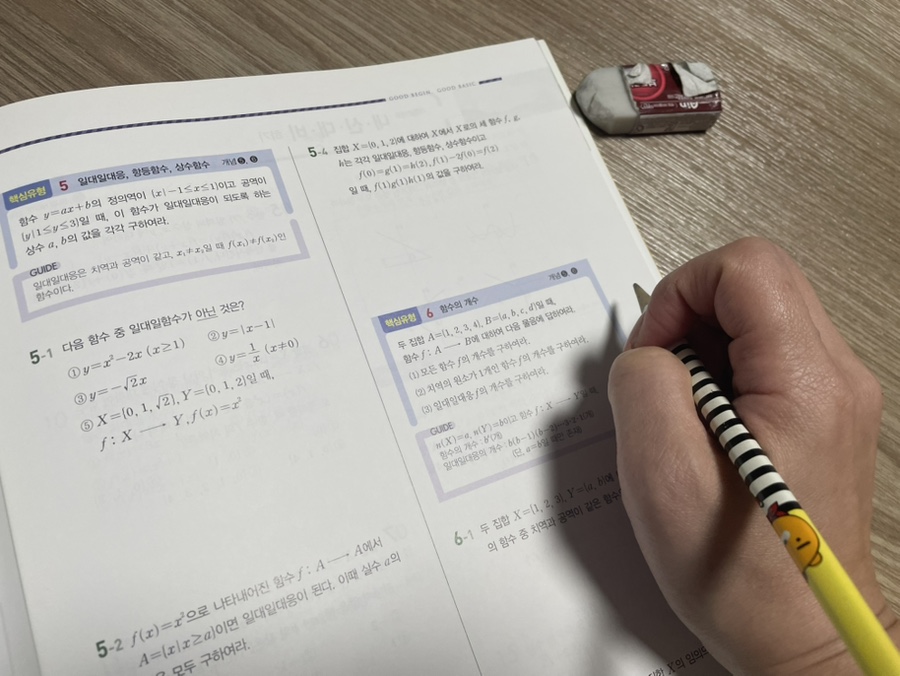 GOOD BEGIN, GOOD BASIC
핵심유형 5 일대일대응, 항등함수, 상수함수 개념 5, 6
함수 y=ax+b의 정의역이 {x|-1≤x≤1}이고 공역이
{y|1≤y≤3}일 때, 이 함수가 일대일대응이 되도록 하는
상수 a, b의 값을 각각 구하여라.
GUIDE
일대일대응은 치역과 공역이 같고, x₁≠x₂일 때 f(x₁)≠f(x₂)인
함수이다.
5-1 다음 함수 중 일대일함수가 아닌 것은?
① y=x²-2x (x≥1) ② y=|x-1|
③ y=-√2x ④ y=1/x (x≠0)
⑤ X={0, 1, √2}, Y={0, 1, 2}일 때,
f : X ⟶ Y, f(x)=x²
5-2 f(x)=x²으로 나타내어진 함수 f : A ⟶ A에서
A={x|x≥a}이면 일대일대응이 된다. 이때 실수 a의
모두 구하여라.
5-4 집합 X={0, 1, 2}에 대하여 X에서 X로의 세 함수 f, g,
h는 각각 일대일대응, 항등함수, 상수함수이고
f(0)=g(1)=h(2), f(1)-2f(0)=f(2)
일 때, f(1)g(1)h(1)의 값을 구하여라.
핵심유형 6 함수의 개수 개념
두 집합 A={1, 2, 3, 4}, B={a, b, c, d}일 때,
함수 f : A ⟶ B에 대하여 다음 물음에 답하여라.
(1) 모든 함수 f의 개수를 구하여라.
(2) 치역의 원소가 1개인 함수 f의 개수를 구하여라.
(3) 일대일대응 f의 개수를 구하여라.
GUIDE
n(X)=a, n(Y)=b이고 함수 f : X ⟶ Y일 때,
함수의 개수 : bᵃ(개)
일대일대응의 개수 : b(b-1)(b-2)
(단, a=b일 때만 존재)
6-1 두 집합 X={1, 2, 3}, Y={a, b}에
의 함수 중 치역과 공역이 같은 함수
X의 임의의
Ain